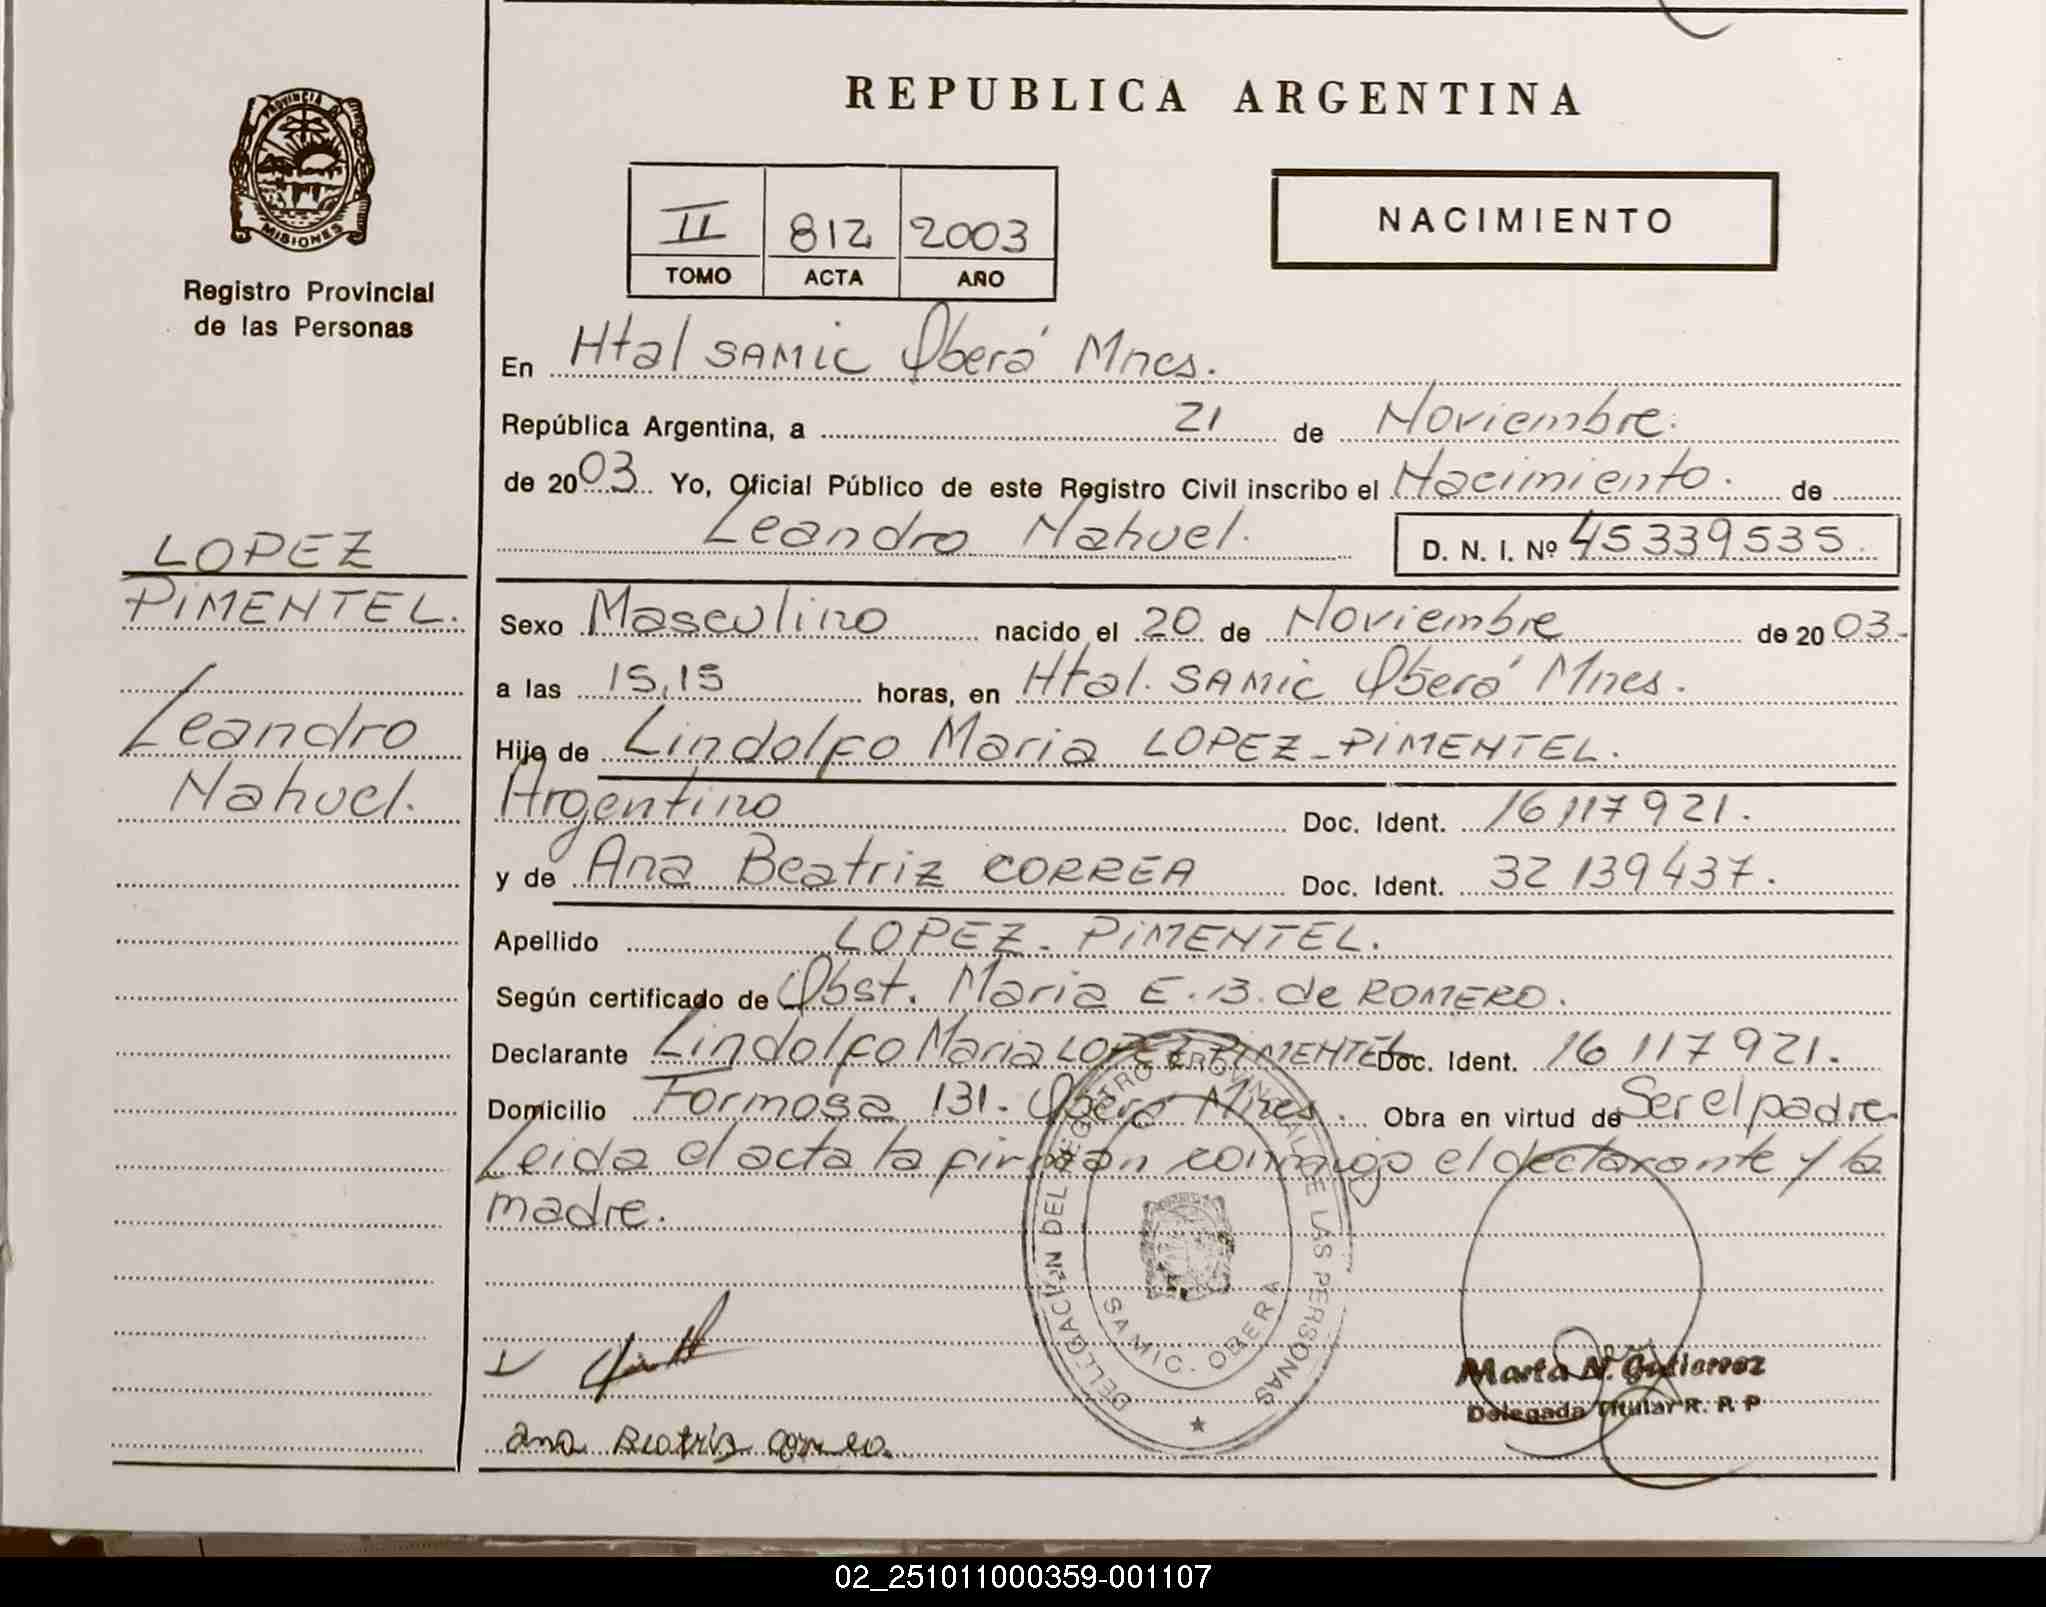 REPUBLICA ARGENTINA
PROVINCIA DE
MISIONES
Registro Provincial
de las Personas
II 812 2003
TOMO ACTA AÑO
NACIMIENTO
En Htal SAMIC Oberá Mnes.
República Argentina, a 21 de Noviembre.
de 2003 Yo, Oficial Público de este Registro Civil inscribo el Nacimiento. de
Leandro Nahuel. D. N. I. Nº 45339535.
LOPEZ
PIMENTEL.
Leandro
Nahuel.
Sexo Masculino nacido el 20 de Noviembre de 2003.
a las 15,15 horas, en Htal. SAMIC Oberá Mnes.
Hijo de Lindolfo Maria LOPEZ-PIMENTEL.
Argentino Doc. Ident. 16 117 921.
y de Ana Beatriz CORREA Doc. Ident. 32 139 437.
Apellido LOPEZ-PIMENTEL.
Según certificado de Obst. Maria E. B. de ROMERO.
Declarante Lindolfo Maria LOPEZ PIMENTEL Doc. Ident. 16 117 921.
Domicilio Formosa 131. Oberá Mnes. Obra en virtud de Ser el padre
Leida el acta la firman conmigo el declarante y la
madre.
DELEGACION DEL REGISTRO PROVINCIAL DE LAS PERSONAS
SAMIC. OBERA
Marta N. Gutierrez
Delegada Titular R. P. P
Ana Beatris Correa.
02_251011000359-001107